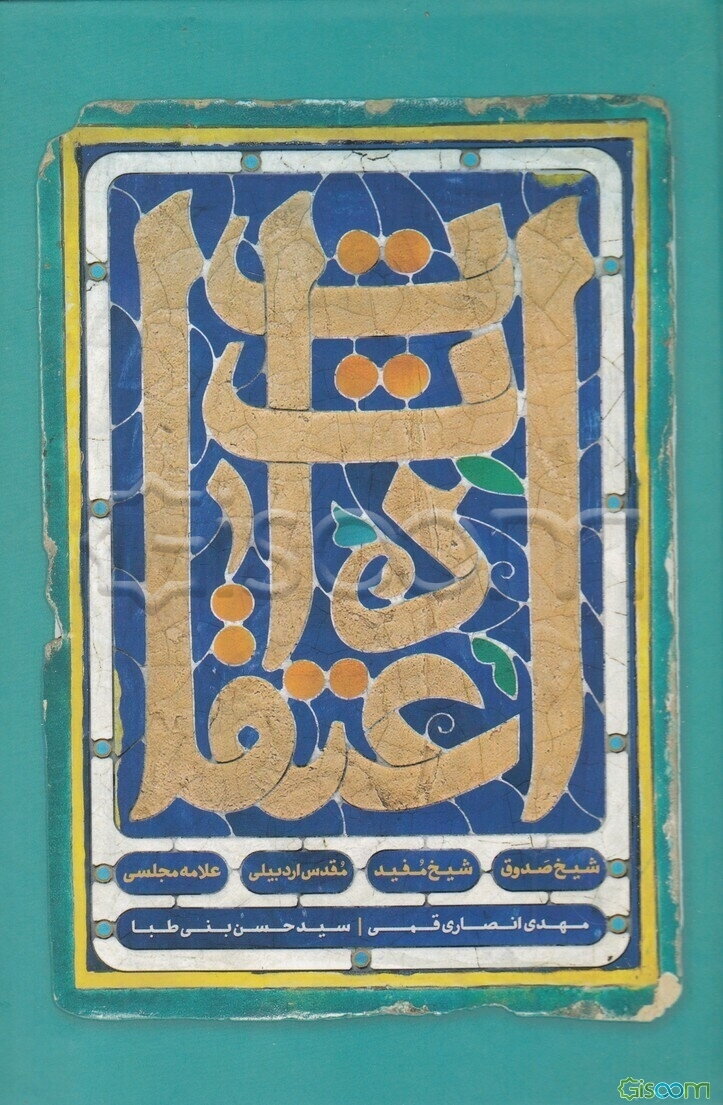 اعتقادات
شیخ صَدوق
شیخ مُفید
مُقدس اردبیلی
علامه مجلسی
مهدی انصاری قمی | سید حسن بنی طبا
Gisoom
Gisoom